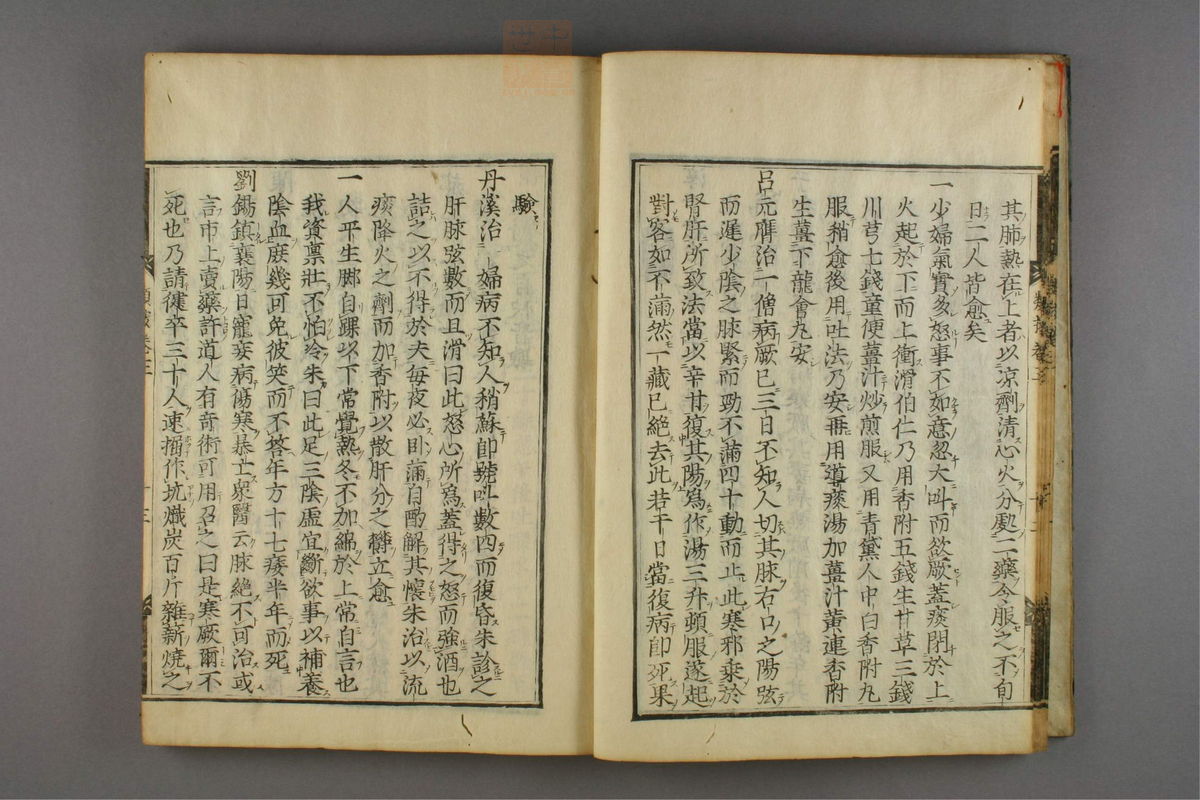 其肺熱在上者以凉劑清心火分處二藥令服之不旬
日二人皆愈矣
一少婦氣實多怒事不如意忽大呌而欲厥蓋痰閉於上
火起於下而上衝滑伯仁乃用香附五錢生甘草三錢
川芎七錢童便薑汁炒煎服又用青黛人中白香附丸
服稍愈後用吐法乃安再用導痰湯加薑汁黃連香附
生薑下龍會丸安
呂元膺治一僧病厥已三日不知人切其脉右口之陽弦
而遲少陰之脉緊而勁不滿四十動而止此寒邪乘於
腎肝所致法當以辛甘復其陽爲作湯三升頓服遂起
對客如不滿然一藏已絶去此若干日當復病卽死果
驗
丹溪治一婦病不知人稍蘇卽號呌數四而復昏朱診之
肝脉弦數而且滑曰此怒心所爲蓋得之怒而強酒也
詰之以不得於夫每夜必引滿自酌解其懷朱治以流
痰降火之劑而加香附以散肝分之欝立愈
一人平生脚自踝以下常覺熱冬不加綿於上常自言也
我資禀壯不怕冷朱曰此足三陰虛宜斷欲事以補養
陰血庶幾可免彼笑而不答年方十七痿半年而死
劉錫鎮襄陽日寵妾病傷寒暴亡衆醫云脉絶不可治或
言市上賣藥許道人有奇術可用召之曰是寒厥爾不
死也乃請健卒三十人速掘作坑熾炭百斤雜薪燒之